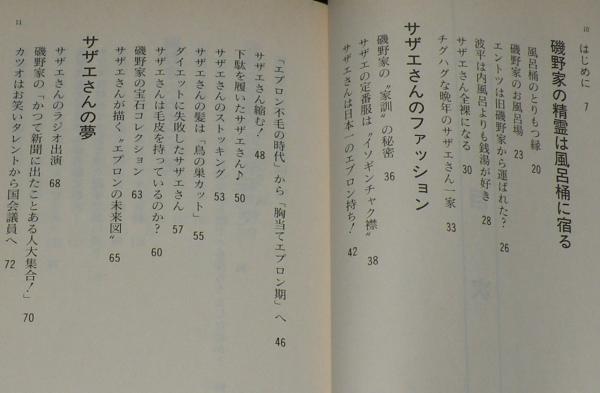 10
はじめに 7
磯野家の精霊は風呂桶に宿る
風呂桶のとりもつ縁 20
磯野家のお風呂場 23
エントツは旧磯野家から運ばれた? 26
波平は内風呂よりも銭湯が好き 28
サザエさん全裸になる 30
チグハグな晩年のサザエさん一家 33
サザエさんのファッション
磯野家の〝家訓〟の秘密 36
サザエの定番服は〝イソギンチャク襟〟 38
サザエさんは日本一のエプロン持ち! 42
11
「エプロン不毛の時代」から「胸当てエプロン期」へ 46
サザエさん縮む! 48
下駄を履いたサザエさん♪ 50
サザエさんのストッキング 53
サザエさんの髪は「鳥の巣カット」 55
ダイエットに失敗したサザエさん 57
サザエさんは毛皮を持っているのか? 60
磯野家の宝石コレクション 63
サザエさんが描く〝エプロンの未来図〟 65
サザエさんの夢
サザエさんのラジオ出演 68
磯野家の「かつて新聞に出たことある人大集合!」 70
カツオはお笑いタレントから国会議員へ 72